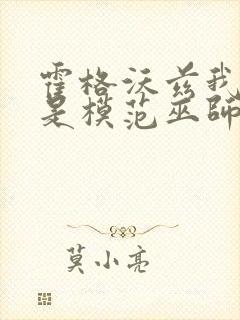 霍格沃兹我
是模范巫師
莫小亮